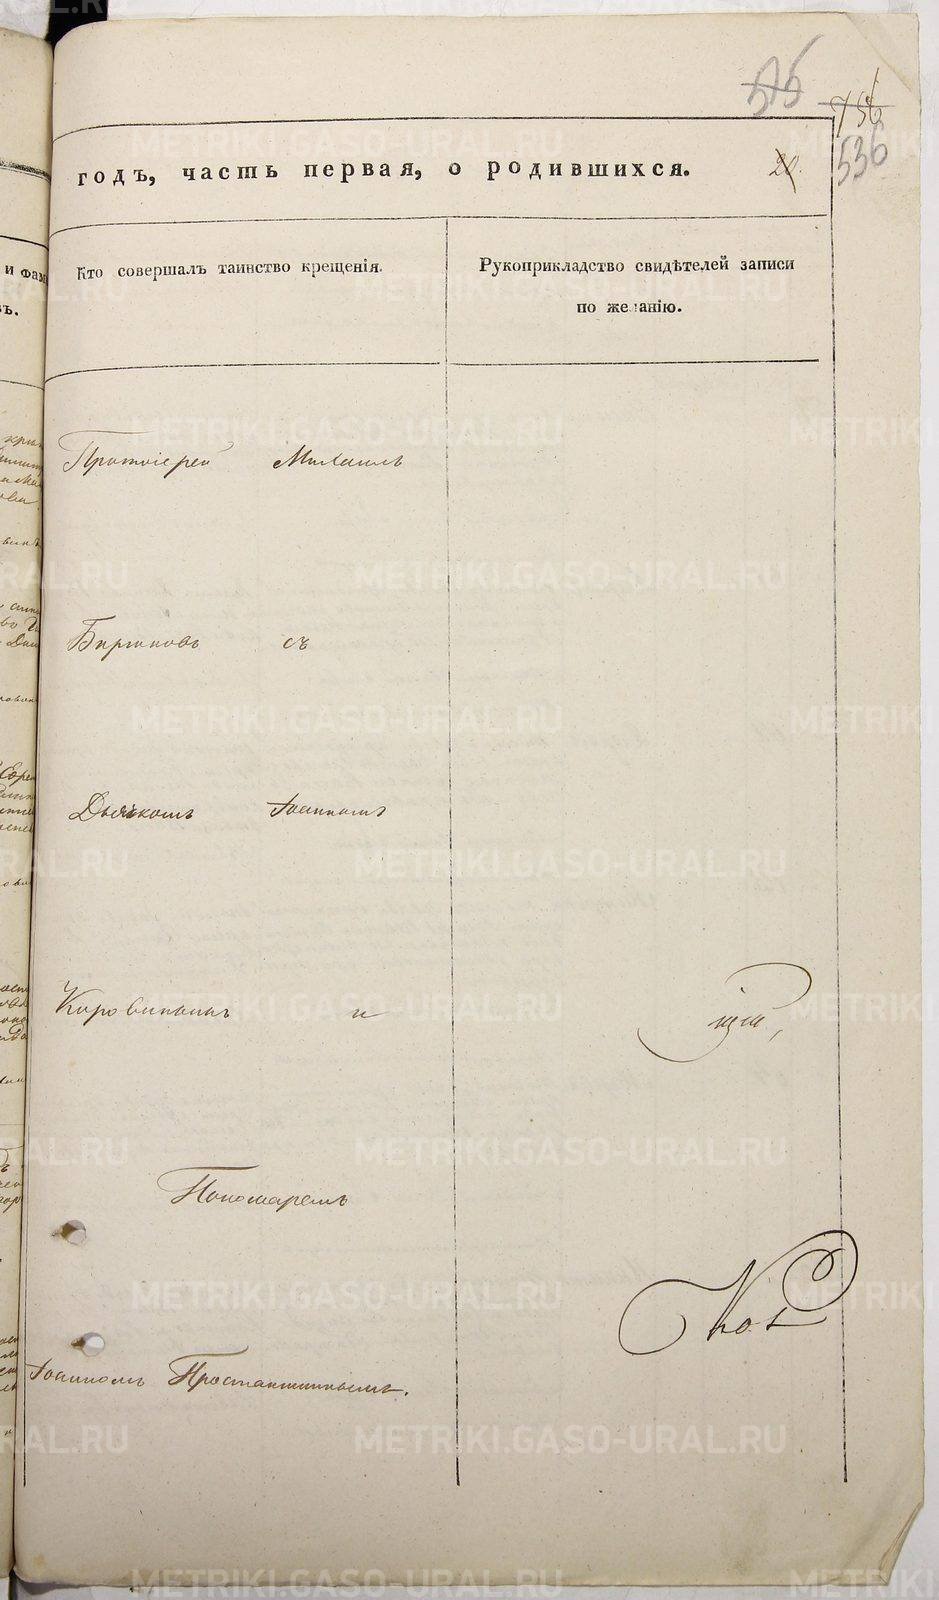 575
756
536
годъ, часть первая, о родившихся.
20.
Кто совершалъ таинство крещенія.
Рукоприкладство свидѣтелей записи
по желанію.
Протоіерей Михаилъ
Бирюковъ съ
Дьячкомъ Іоанномъ
Коровинымъ и
щій,
Пономаремъ
Іоанномъ
METRIKI.GASO-URAL.RU